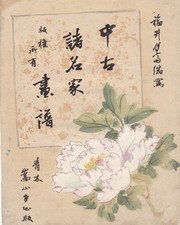 福井月斎編寫
中古
諸名家
畫譜
版權
所有
青木
嵩山堂版